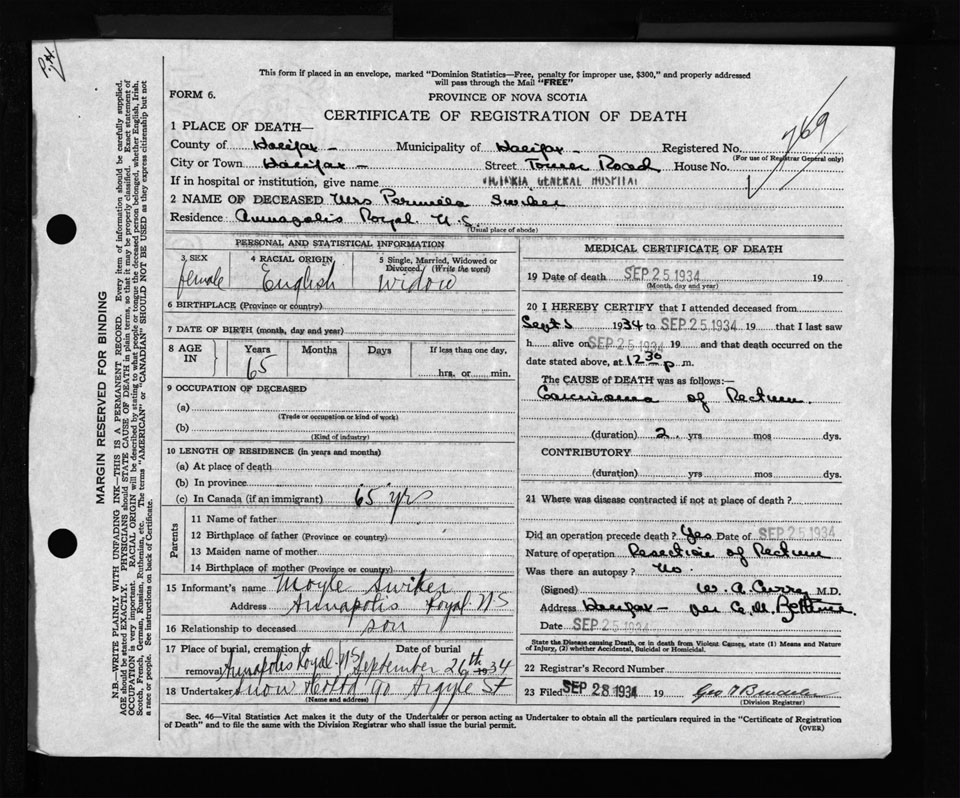 P.H.
This form if placed in an envelope, marked "Dominion Statistics—Free, penalty for improper use, $300," and properly addressed
will pass through the Mail "FREE"
FORM 6.
PROVINCE OF NOVA SCOTIA
CERTIFICATE OF REGISTRATION OF DEATH
1 PLACE OF DEATH—
County of Halifax - Municipality of Halifax - Registered No. 769
(For use of Registrar General only)
City or Town Halifax - Street Tower Road House No.
If in hospital or institution, give name VICTORIA GENERAL HOSPITAL
2 NAME OF DECEASED Mrs Permelia Swiker
Residence Annapolis Royal N.S.
(Usual place of abode)
PERSONAL AND STATISTICAL INFORMATION
3 SEX female
4 RACIAL ORIGIN English
5 Single, Married, Widowed or Divorced (Write the word) widow
6 BIRTHPLACE (Province or country)
7 DATE OF BIRTH (month, day and year)
8 AGE IN Years 65 Months Days If less than one day, hrs. or min.
9 OCCUPATION OF DECEASED
(a)
(Trade or occupation or kind of work)
(b)
(Kind of industry)
10 LENGTH OF RESIDENCE (in years and months)
(a) At place of death
(b) In province
(c) In Canada (if an immigrant) 65 yrs
Parents
11 Name of father
12 Birthplace of father (Province or country)
13 Maiden name of mother
14 Birthplace of mother (Province or country)
15 Informant's name Moyle Swiker
Address Annapolis Royal NS
16 Relationship to deceased son
17 Place of burial, cremation or removal Annapolis Royal NS Date of burial September 26th 1934
18 Undertaker Snow & Co Ltd 90 Argyle St
(Name and address)
MEDICAL CERTIFICATE OF DEATH
19 Date of death SEP 25 1934 19
(Month, day and year)
20 I HEREBY CERTIFY that I attended deceased from
Sept 5 1934 to SEP 25 1934 19 that I last saw
h alive on SEP 25 1934 19 and that death occurred on the
date stated above, at 12 30 p m.
The CAUSE of DEATH was as follows:—
Carcinoma of Rectum.
(duration) 2. yrs mos dys.
CONTRIBUTORY
(duration) yrs mos dys.
21 Where was disease contracted if not at place of death?
Did an operation precede death? Yes Date of SEP 25 1934
Nature of operation Resection of Rectum
Was there an autopsy? No.
(Signed) W. A. Curry M.D.
Address Halifax - per G. M.
Date SEP 25 1934
State the Disease causing Death, or in death from Violent Causes, state (1) Means and Nature
of Injury, (2) whether Accidental, Suicidal or Homicidal.
22 Registrar's Record Number
23 Filed SEP 28 1934 19
(Division Registrar)
Sec. 46—Vital Statistics Act makes it the duty of the Undertaker or person acting as Undertaker to obtain all the particulars required in the "Certificate of Registration
of Death" and to file the same with the Division Registrar who shall issue the burial permit.
(OVER)
MARGIN RESERVED FOR BINDING
N.B.—WRITE PLAINLY WITH UNFADING INK—THIS IS A PERMANENT RECORD. Every item of information should be carefully supplied.
AGE should be stated EXACTLY. PHYSICIANS should STATE CAUSE OF DEATH in plain terms, so that it may be properly classified. Exact statement of
OCCUPATION is very important. RACIAL ORIGIN will be described by stating to what people or tongue the deceased person belonged, whether English, Irish,
Scotch, French, German, Russian, Ruthenian, etc. The terms "AMERICAN" or "CANADIAN" SHOULD NOT BE USED as they express citizenship but not
a race or people. See instructions on back of Certificate.